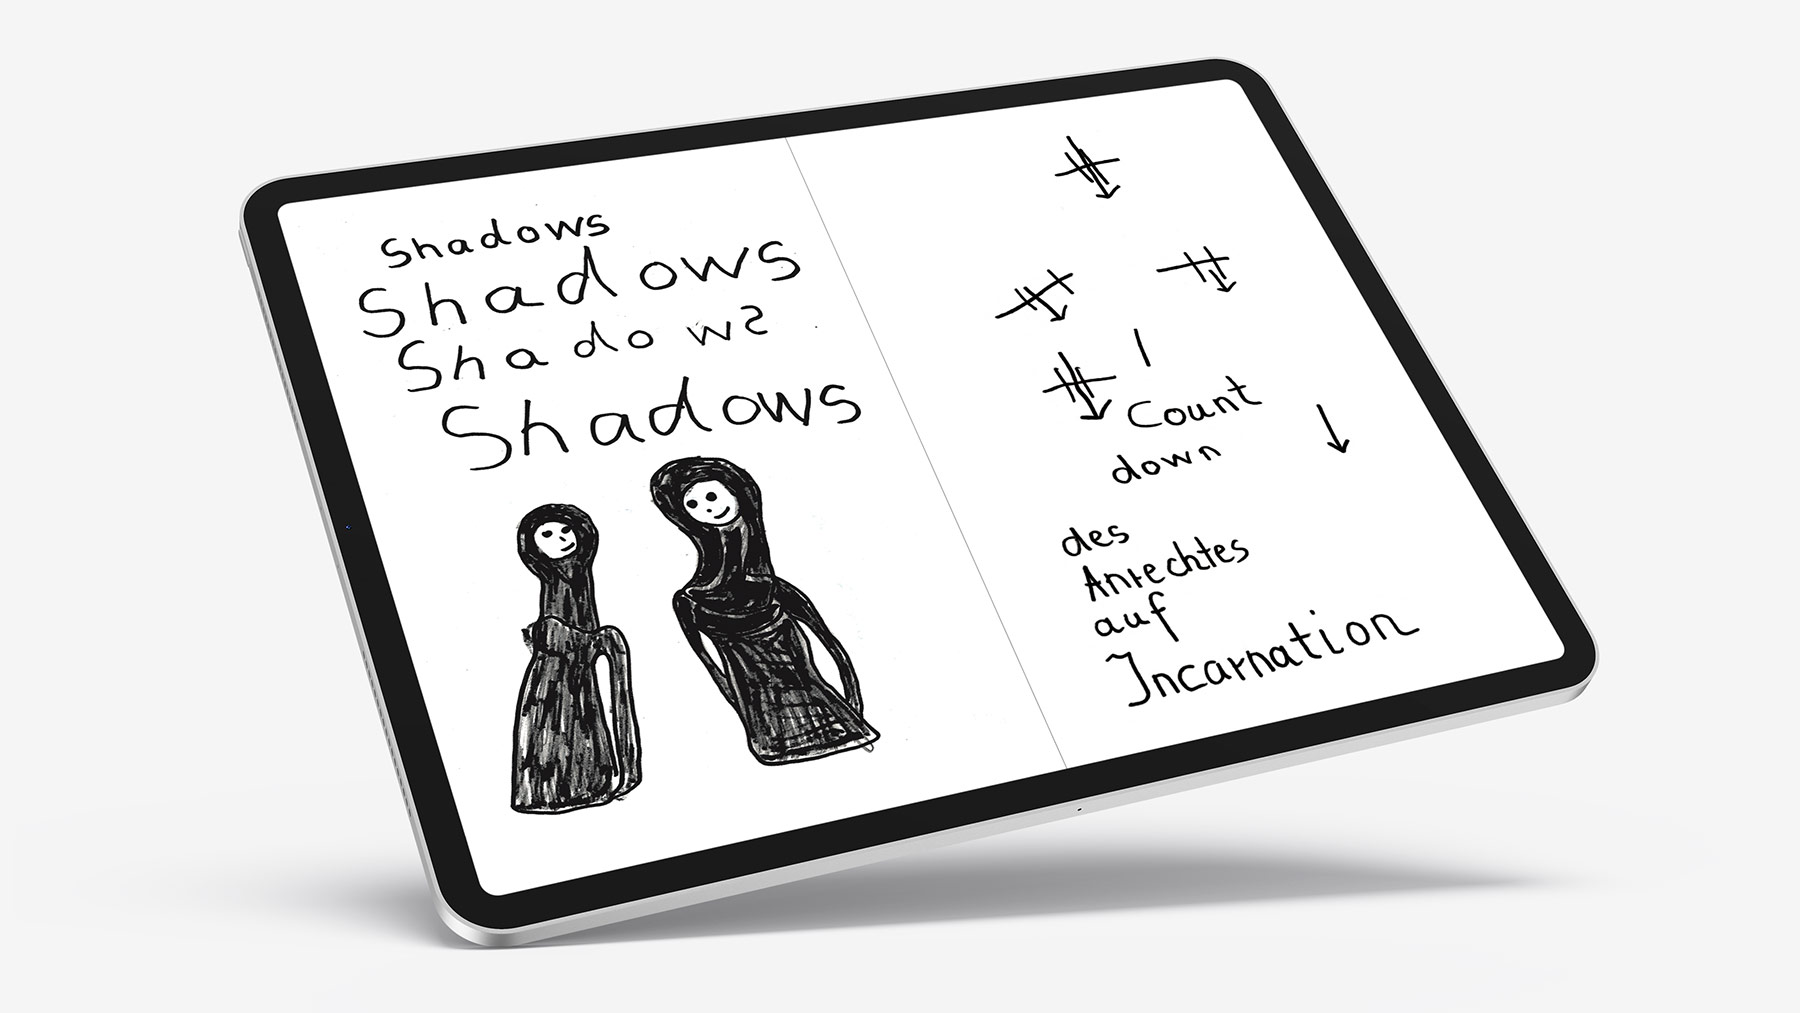 Shadows
Shadows
Shadows
Shadows
Count
down
des
Anrechtes
auf
Incarnation